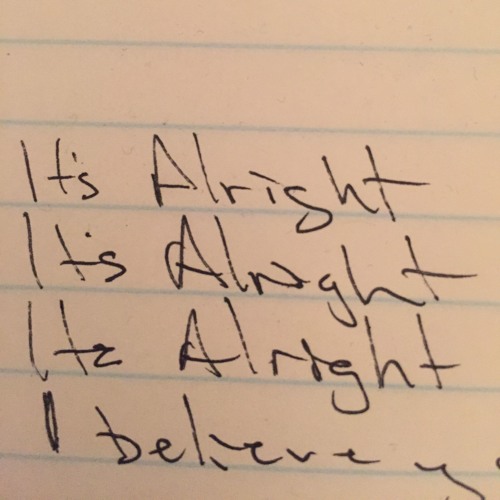 It's Alright
It's Alright
Its Alright
I believe